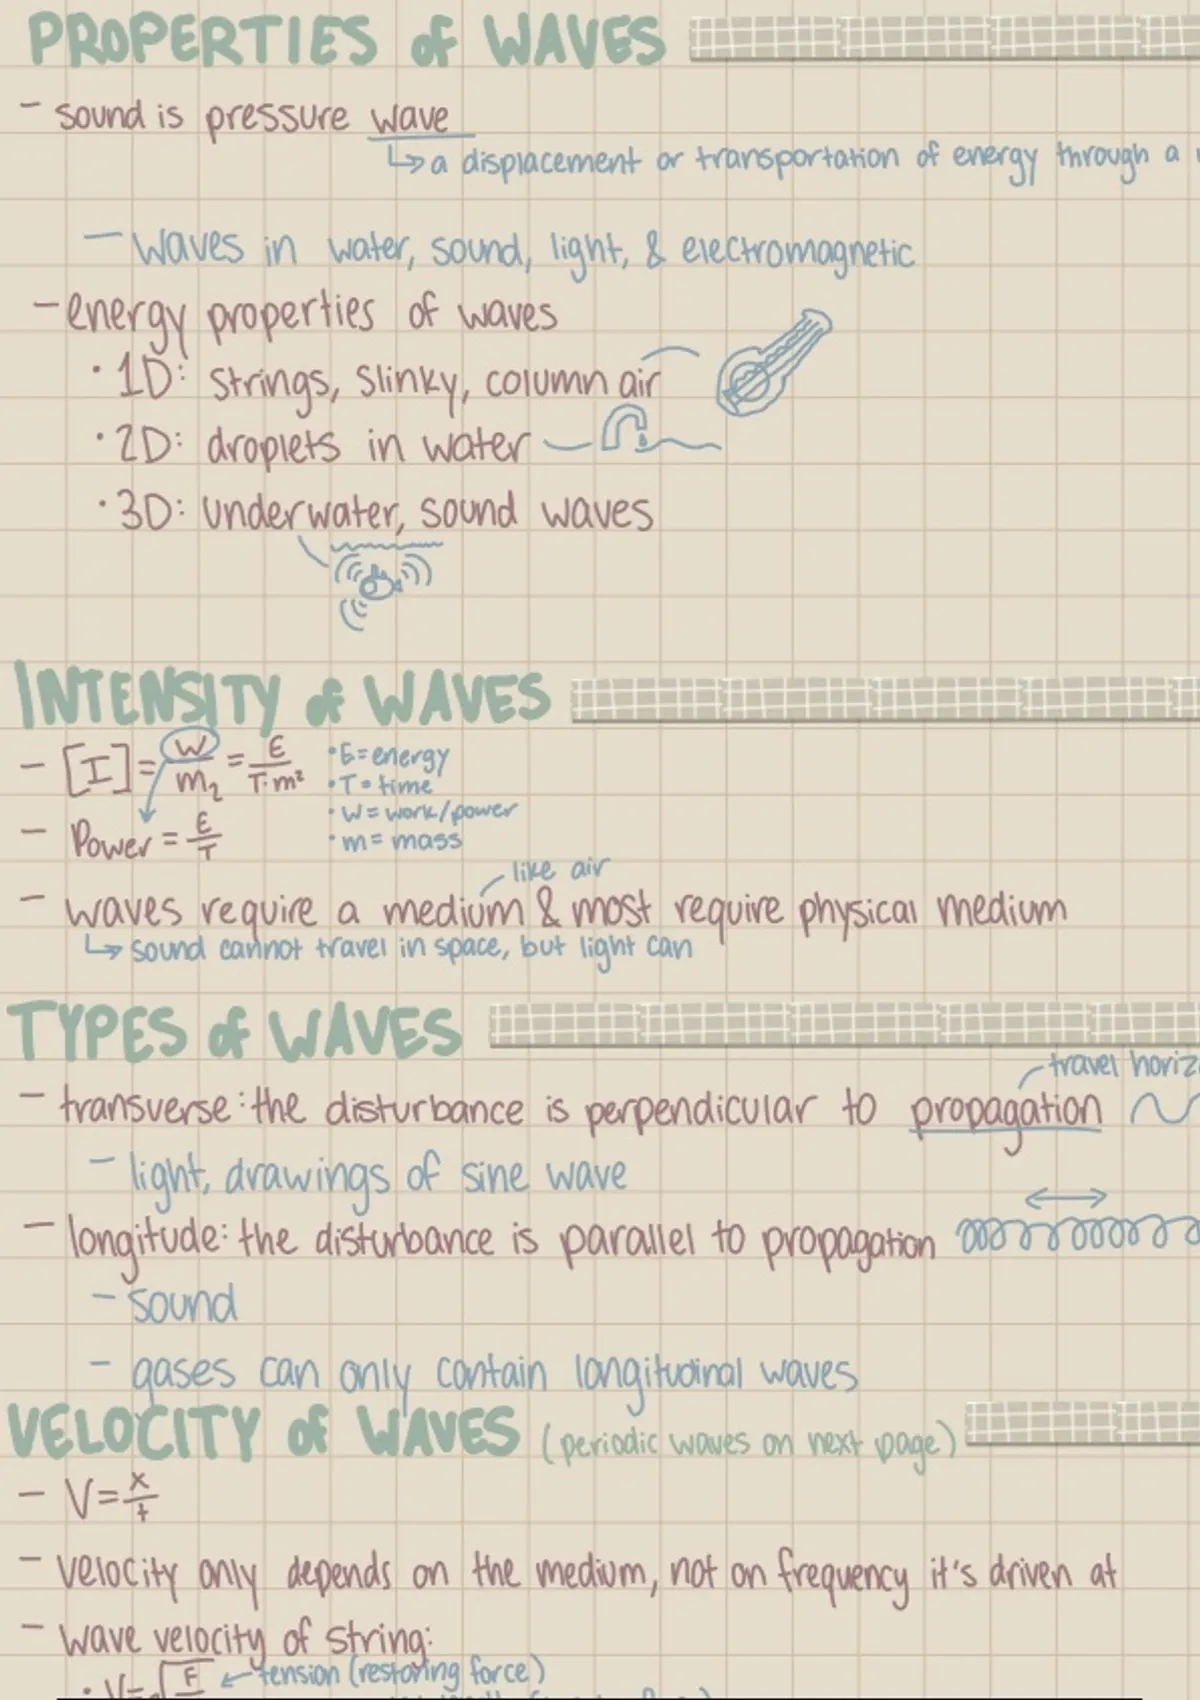 PROPERTIES of WAVES
- sound is pressure wave
↳ a displacement or transportation of energy through a
- waves in water, sound, light, & electromagnetic
- energy properties of waves
• 1D: strings, slinky, column air
• 2D: droplets in water
• 3D: underwater, sound waves
INTENSITY of WAVES
- [I] = W/m₂ = E/T·m²
• E = energy
• T = time
• W = work/power
• m = mass
- Power = E/T
like air
- waves require a medium & most require physical medium
↳ sound cannot travel in space, but light can
TYPES of WAVES
travel
- transverse: the disturbance is perpendicular to propagation
- light, drawings of sine wave
- longitude: the disturbance is parallel to propagation
- sound
- gases can only contain longitudinal waves
VELOCITY of WAVES (periodic waves on next page)
- V = x/t
- velocity only depends on the medium, not on frequency it's driven at
- wave velocity of string:
• V = √F ← tension (restoring force)